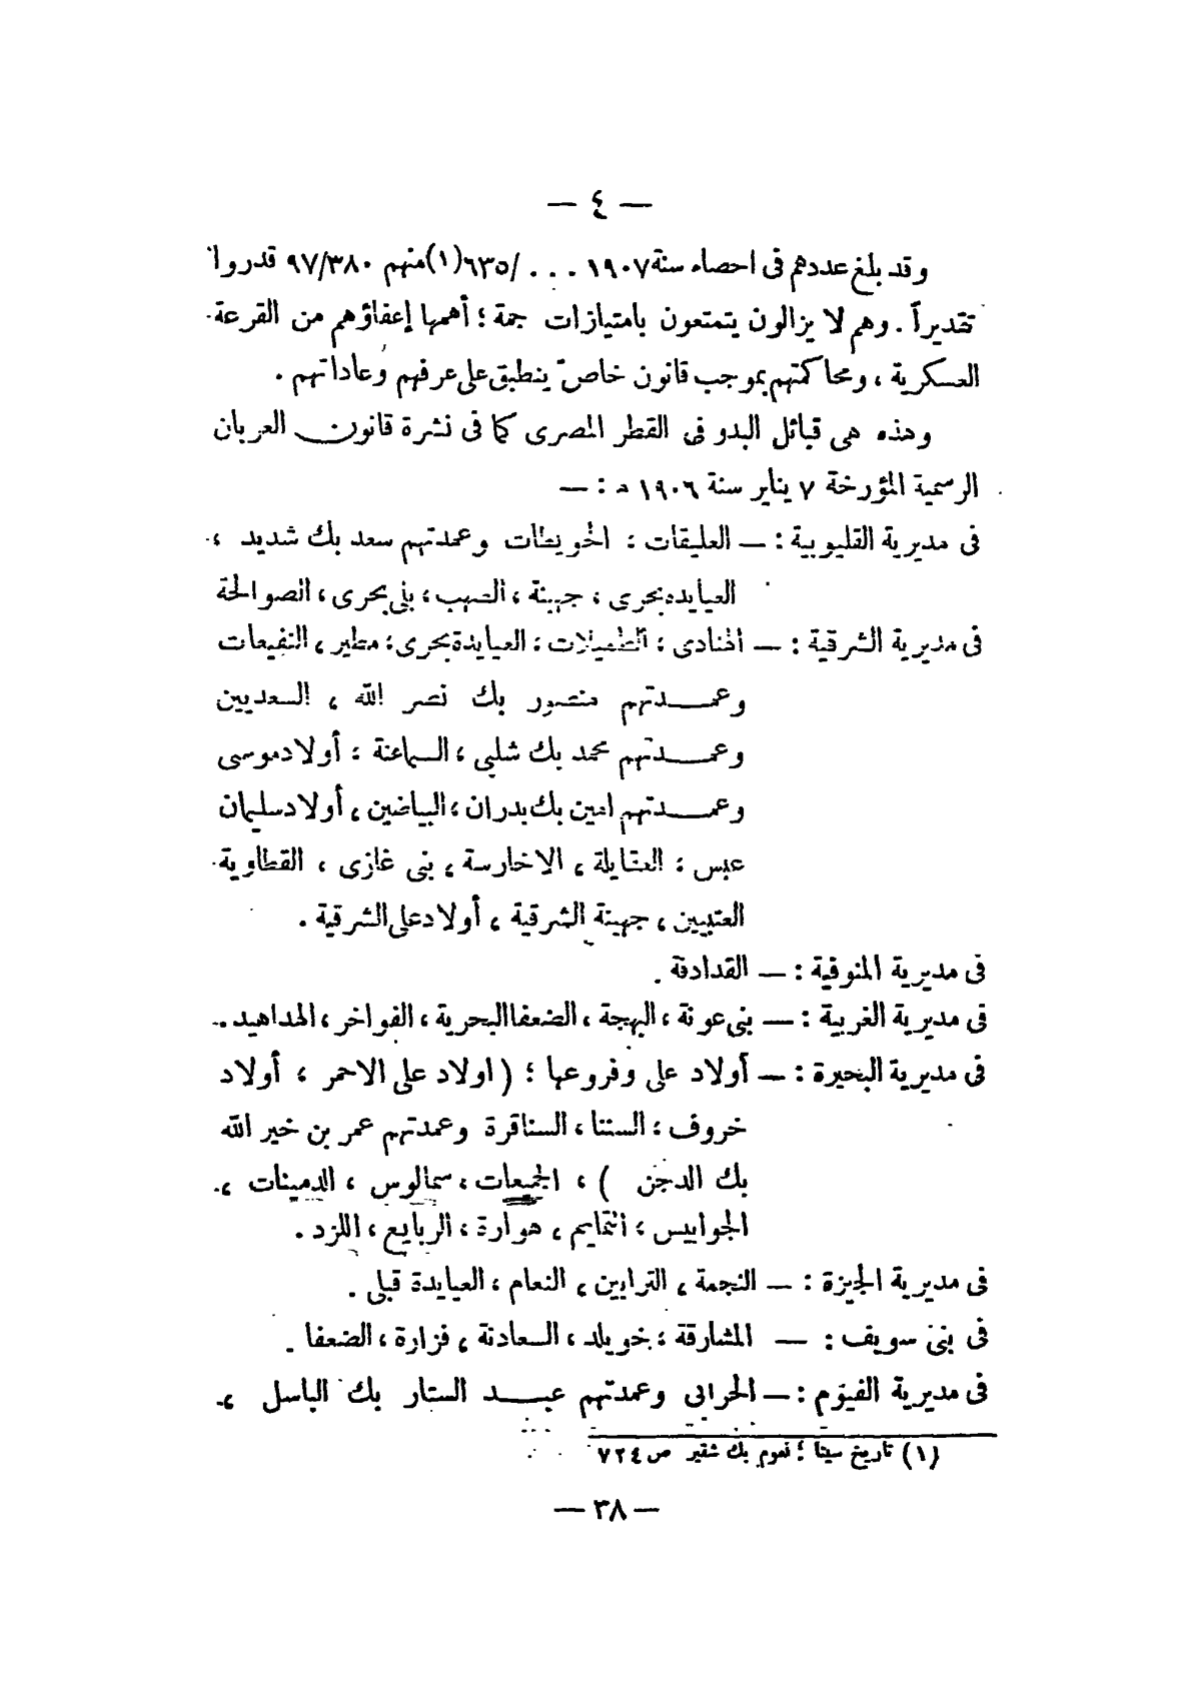 — ٤ —
وقد بلغ عددهم فى احصاء سنة ١٩٠٧ . . . /٦٣٥(١)منهم ٩٧/٣٨٠ قدروا
تقديراً . وهم لا يزالون يتمتعون بامتيازات جمة ؛ أهمها إعفاؤهم من القرعة
العسكرية ، ومحاكمتهم بموجب قانون خاصّ ينطبق على عرفهم وعاداتهم .
وهذه هى قبائل البدو فى القطر المصرى كما فى نشرة قانون العربان
الرسمية المؤرخة ٧ يناير سنة ١٩٠٦ م : —
فى مديرية القليوبية : — العليقات : الخويطات وعمدتهم سعد بك شديد ،
العيايده بحرى ، جهينة ، الصهب ، بلى بحرى ، الصوالحة
فى مديرية الشرقية : — الهنادى ؛ الطميلات ؛ العيايدة بحرى ؛ مطير ، النفيعات
وعمـــدتهم منصور بك نصر الله ، السعديين
وعمـــدتهم محمد بك شلبى ، السماعنة ؛ أولاد موسى
وعمـــدتهم امين بك بدران ، البياضين ، أولاد سليمان
عبس ؛ العتايلة ، الاخارسة ، بنى غازى ، القطاوية
العتيبين ، جهينة الشرقية ، أولاد على الشرقية .
فى مديرية المنوفية : — القدادفة .
فى مديرية الغربية : — بنى عونة ، البهجة ، الضعفا البحرية ، الفواخر ، الهداهيد .
فى مديرية البحيرة : — أولاد على وفروعها ؛ ( اولاد على الاحمر ، أولاد
خروف ؛ السننا ، السناقرة وعمدتهم عمر بن خير الله
بك الدجن ) ، الجميعات ، سمالوس ، الدمينات ،
الجوابيس ؛ التمايم ، هوارة ، الربايع ، اللزد .
فى مديرية الجيزة : — النجمة ، الترابين ، النعام ، العيايدة قبلى .
فى بنى سويف : — المشارقة ؛ خويلد ، السعادنة ، فزارة ، الضعفا .
فى مديرية الفيوم : — الحرابى وعمدتهم عبـــد الستار بك الباسل ،
(١) تاريخ سينا ؛ نعوم بك شقير ص ٧٢٤
— ٣٨ —